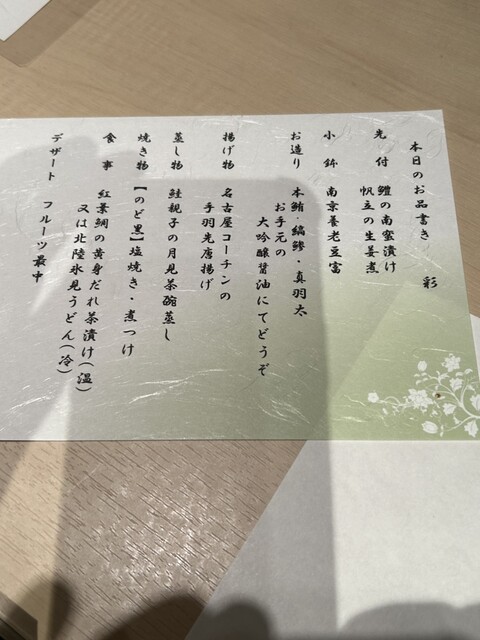 本日のお品書き 彩
先付 鱧の南蛮漬け
帆立の生姜煮
小鉢 南京養老豆富
お造り 本鮪・縞鯵・真羽太
お手元の
大吟醸醤油にてどうぞ
揚げ物 名古屋コーチンの
手羽先唐揚げ
蒸し物 鮭親子の月見茶碗蒸し
焼き物 【のど黒】塩焼き・煮つけ
食事 紅葉鯛の黄身だれ茶漬け(温)
又は北陸氷見うどん(冷)
デザート フルーツ最中